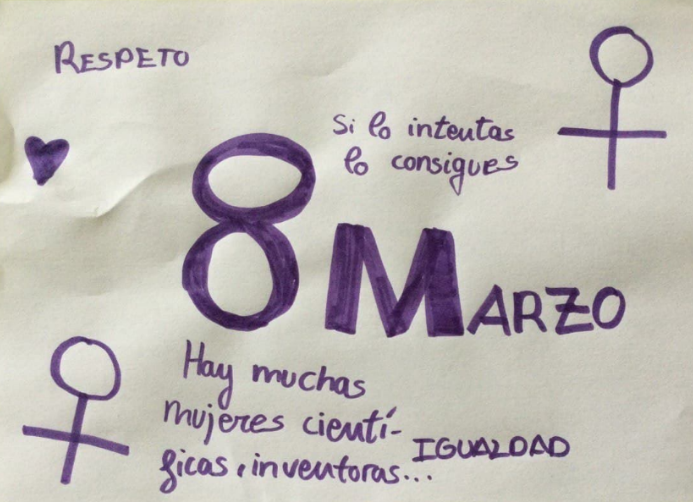 RESPETO
Si lo intentas
lo consigues
8 MARZO
Hay muchas
mujeres cientí-
ficas, inventoras...
IGUALDAD